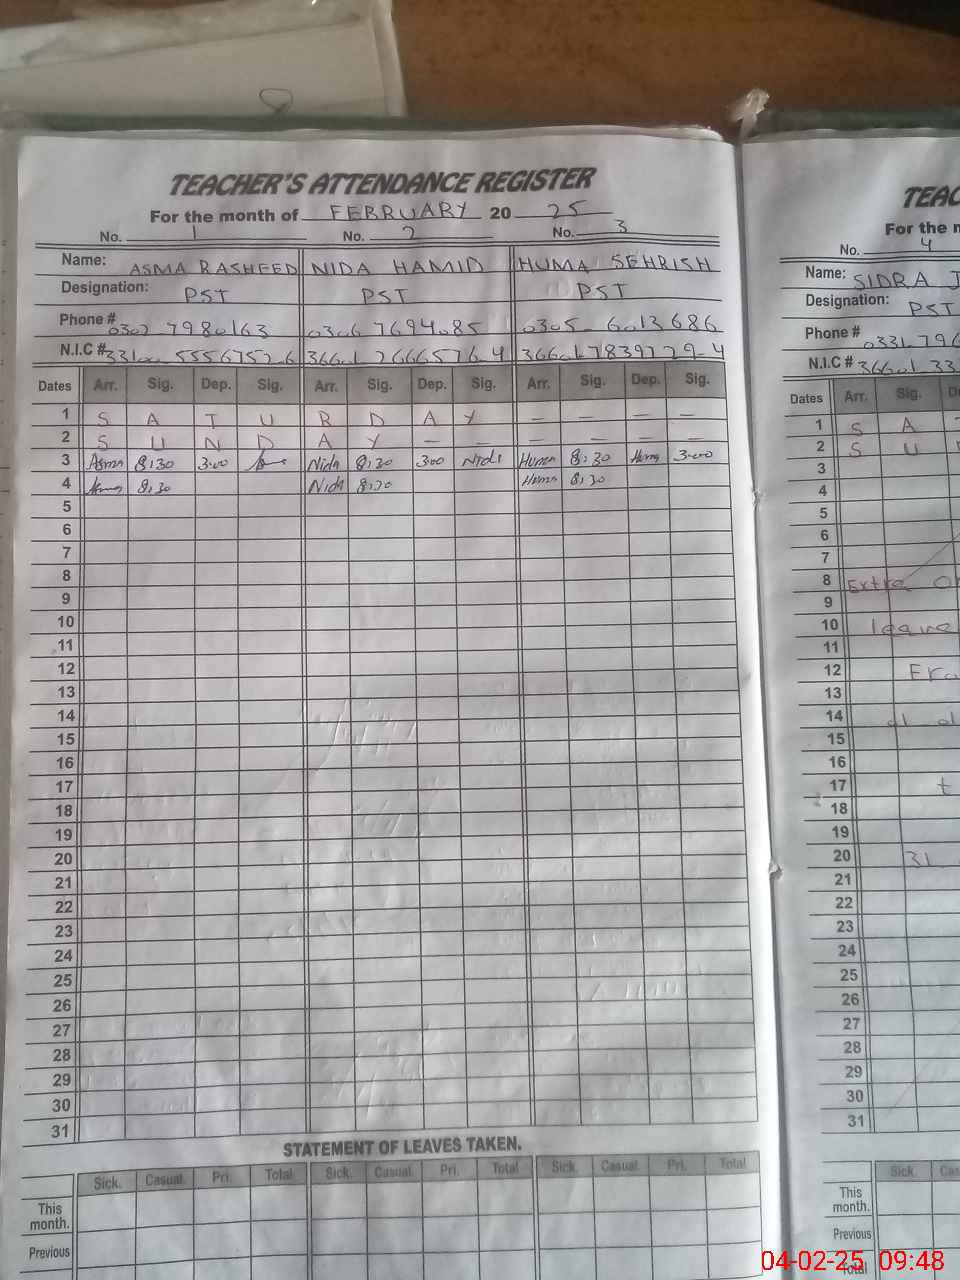 TEACHER'S ATTENDANCE REGISTER
For the month of FEBRUARY 20 25
No. 1 No. 2 No. 3
Name: ASMA RASHEED NIDA HAMID HUMA SEHRISH
Designation: PST PST PST
Phone # 0307 7980163 0306 7694085 0305-6013686
N.I.C #
Dates Arr. Sig. Dep. Sig. Arr. Sig. Dep. Sig. Arr. Sig. Dep. Sig.
1 S A T U R D A Y - - - -
2 S U N D A Y - - - - - -
3 Asma 8:30 3:00 Nida 8:30 300 Nida Huma 8:30 Huma 3:00
4 8:30 Nida 8:30 Huma 8:30
5
6
7
8
9
10
11
12
13
14
15
16
17
18
19
20
21
22
23
24
25
26
27
28
29
30
31
STATEMENT OF LEAVES TAKEN.
Sick. Casual. Pri. Total Sick. Casual. Pri. Total Sick. Casual. Pri. Total
This
month.
Previous
TEAC
For the m
No. 4
Name: SIDRA J
Designation: PST
Phone # 0331-796
N.I.C #
Dates Arr. Sig. D
1 S A
2 S U
3
4
5
6
7
8 Extra
9
10 leave
11
12 Fro
13
14
15
16
17 t
18
19
20 31
21
22
23
24
25
26
27
28
29
30
31
Sick. Cas
This
month.
Previous
Total
04-02-25 09:48